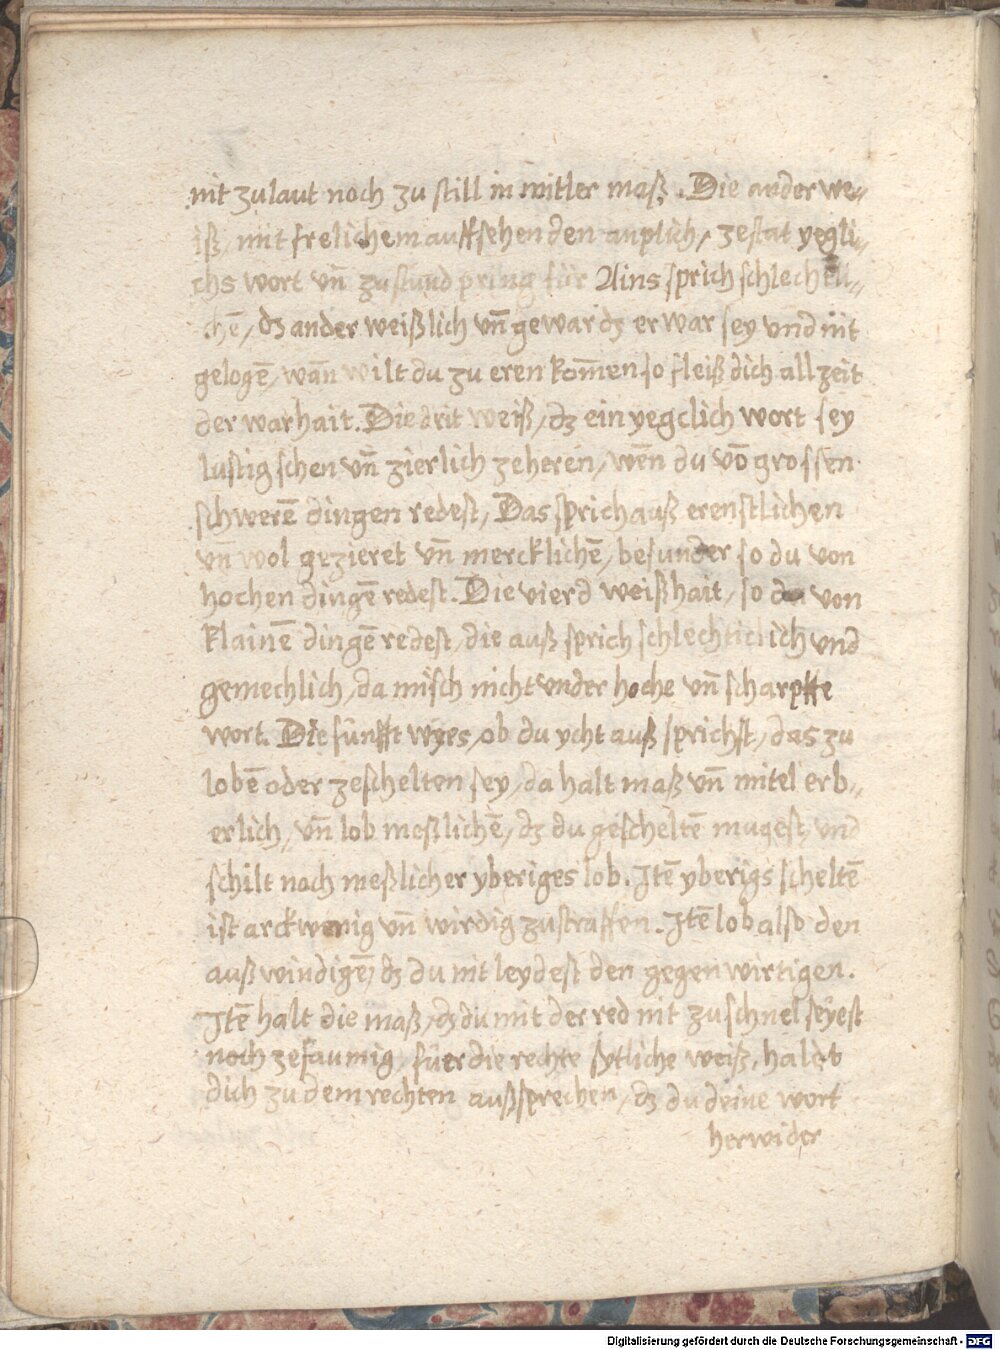 nit zulaut noch zu still in mitler maß. Die ander we„
iß, mit frelichem auffsehen den antplich, zestat yegli„
chs wort vn̄ zustund pring für Ains sprich schlecheli„
chē, dz ander weißlich vn̄ gewar dz er war sey vnd nit
gelogē, wan̄ wilt du zu eren kom̄en so fleiß dich all zeit
der warhait. Die drit weiß, dz ein yegclich wort sey
lustig schen vn̄ zierlich zeheren, wen̄ du vō grossen
schwerē dingen redest, Das sprich auß erenstlichen
vn̄ wol gezieret vn̄ mercklichē, besunder so du von
hochen dingē redest. Die vierd weißhait, so du von
klainē dingē redest, die auß sprich schlechticlich vnd
gemechlich, da misch nicht vnder hoche vn̄ scharpffe
wort. Die fünfft wyes, ob du ycht auß sprichst, das zu
lobē oder zeschelten sey, da halt maß vn̄ mitel erb„
erlich, vn̄ lob meßlichē, dz du gescheltē mugest, vnd
schilt nach meßlicher yberiges lob. Itē yberigs scheltē
ist arckwenig vn̄ wirdig zustraffen. Itē lob also den
auß windigē, dz du nit leydest den gegenwirtigen.
Itē halt die maß, dz du mit der red nit zu schnel seyest
noch zesaumig, füer die rechte sytliche weiß, hald
dich zu dem rechten außsprechen, dz du deine wort
herwider
Digitalisierung gefördert durch die Deutsche Forschungsgemeinschaft - DFG